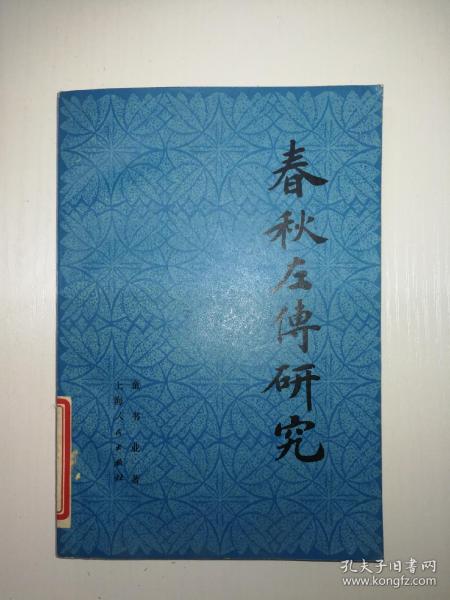 春秋左傳研究
童书业 著
上海人民出版社
孔夫子旧书网
www.kongfz.com